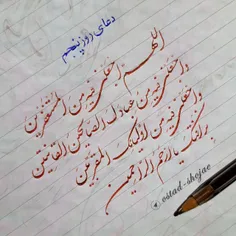 دعای روز پنجم
اللهم اجعلنی فیه من المستغفرین
واجعلنی فیه من عبادک الصالحین القانتین
واجعلنی فیه من اولیائک المقربین
برأفتک یا ارحم الراحمین
ostad-shojae